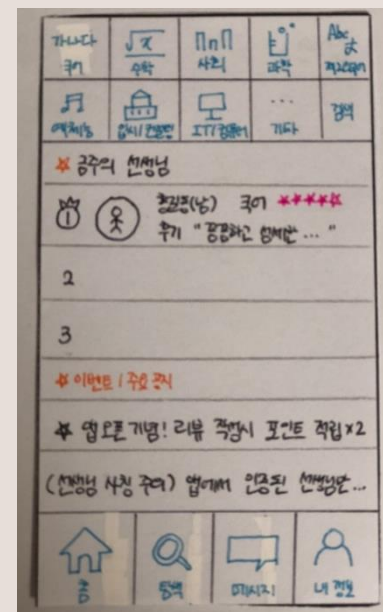 가나다 √x ∏n∏ Abc
국어 수학 사회 과학 제2외국어
♬ ...
예체능 입시/컨설팅 IT/컴퓨터 기타 검색
☆ 금주의 선생님
1 홍길동(남) 국어 ★★★★☆
후기 "꼼꼼하고 섬세한 ... "
2
3
☆ 이벤트 / 주요 공지
☆ 앱 오픈 기념! 리뷰 작성시 포인트 적립×2
(선생님 사칭 주의) 앱에서 인증된 선생님만...
홈 탐색 메시지 내 정보